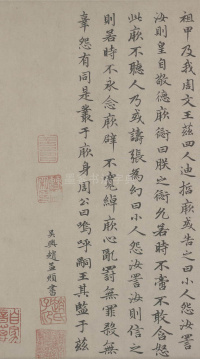 祖甲及我周文王茲四人迪哲厥或告之曰小人怨汝詈
汝則皇自敬德厥愆曰朕之愆允若時不啻不敢含怒
此厥不聽人乃或譸張為幻曰小人怨汝詈汝則信之
則若時不永念厥辟不寬綽厥心亂罰無罪殺無
辜怨有同是叢于厥身周公曰嗚呼嗣王其監于茲
吳興趙孟頫書